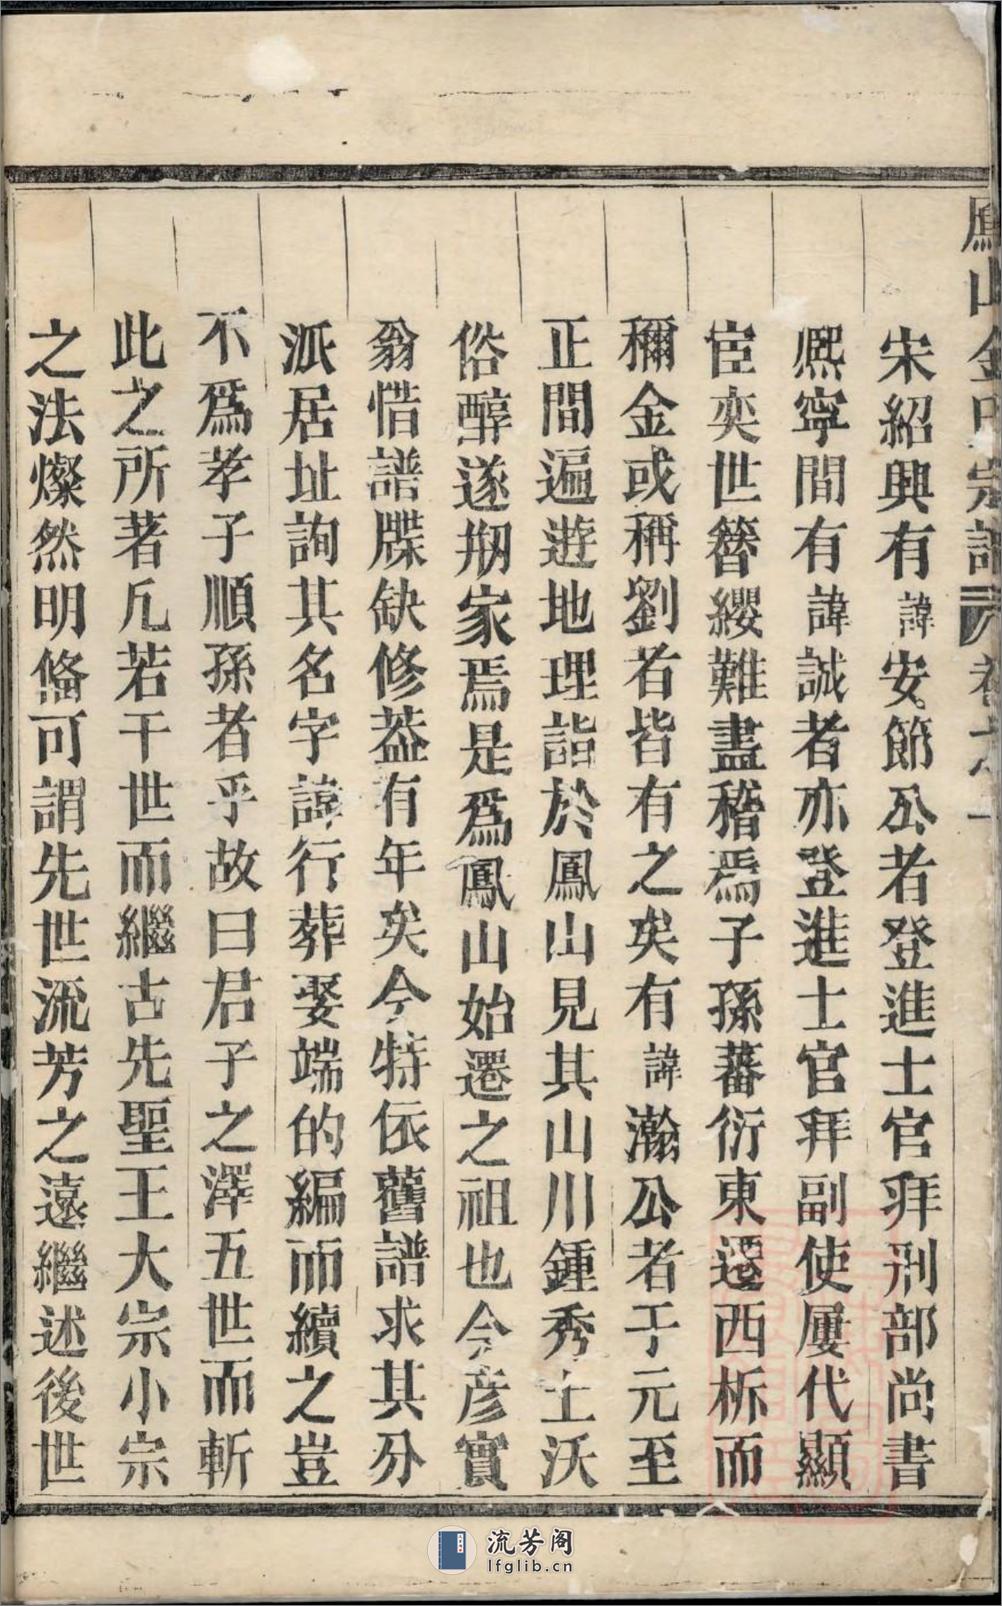 宋紹興有諱安節公者登進士官拜刑部尚書
熈寧間有諱誠者亦登進士官拜副使屢代顯
宦奕世簮纓難盡稽焉子孫蕃衍東遷西柝而
稱金或稱劉者皆有之矣有諱瀚公者于元至
正間遍遊地理詣於鳳山見其山川鍾秀土沃
俗醇遂剏家焉是爲鳳山始遷之祖也今彦實
翁惜譜牒缺修葢有年矣今特依舊譜求其分
派居址詢其名字諱行葬娶端的編而續之豈
不爲孝子順孫者乎故曰君子之澤五世而斬
此之所著凡若干世而繼古先聖王大宗小宗
之法燦然明偹可謂先世流芳之遠繼述後世
流芳阁
lfglib.cn